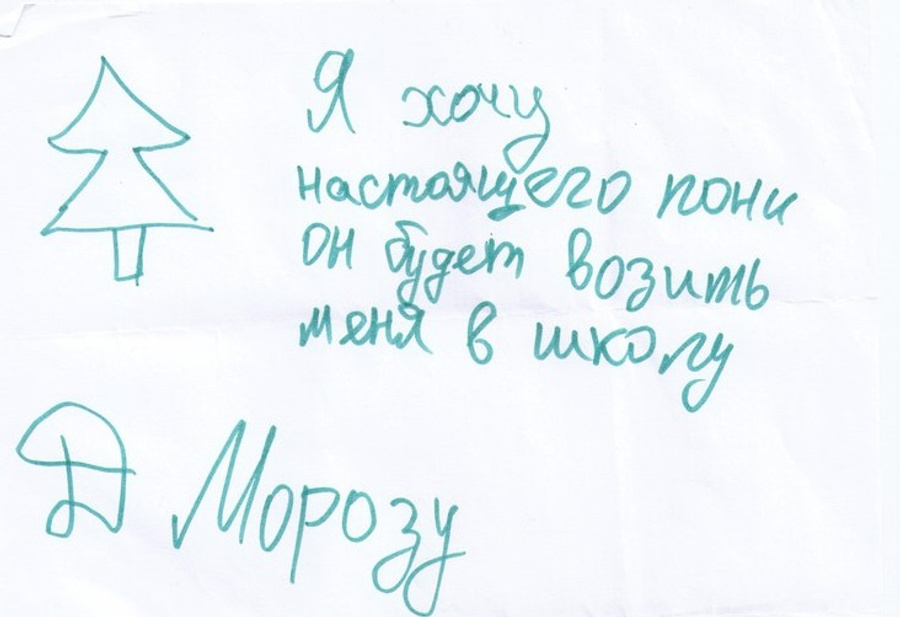 Я хочу
настоящего пони
он будет возить
меня в школу
Д Морозу